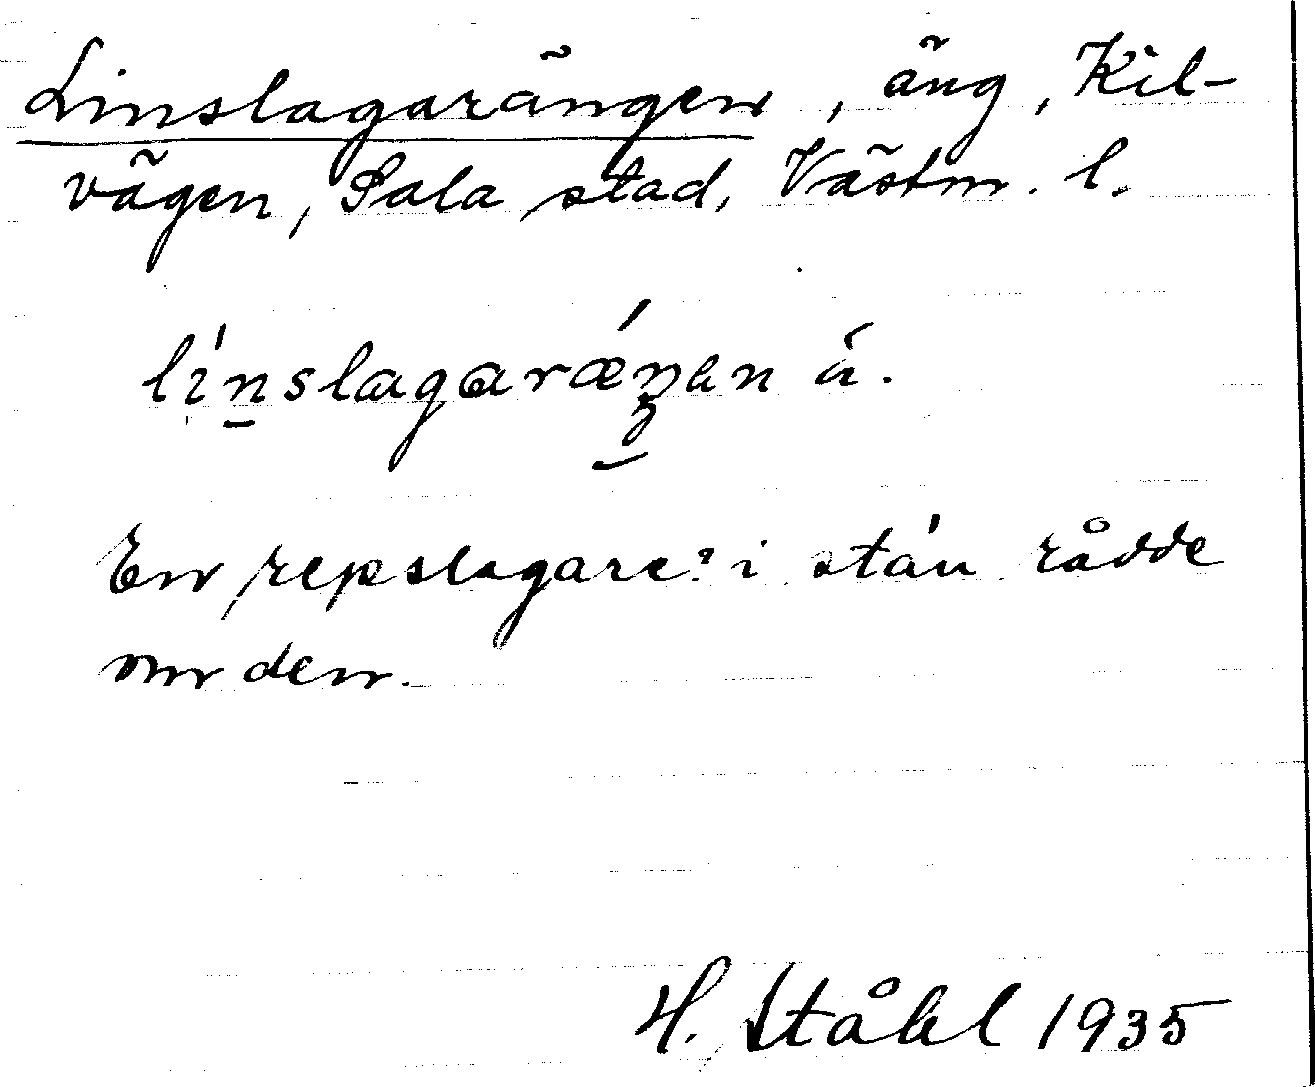 Linslagarängen, äng, Kil-
vägen, Sala stad, Västm. l.
línslagarǽŋen á.
En repslagare? i stán rådde
om den.
H. Ståhl 1935